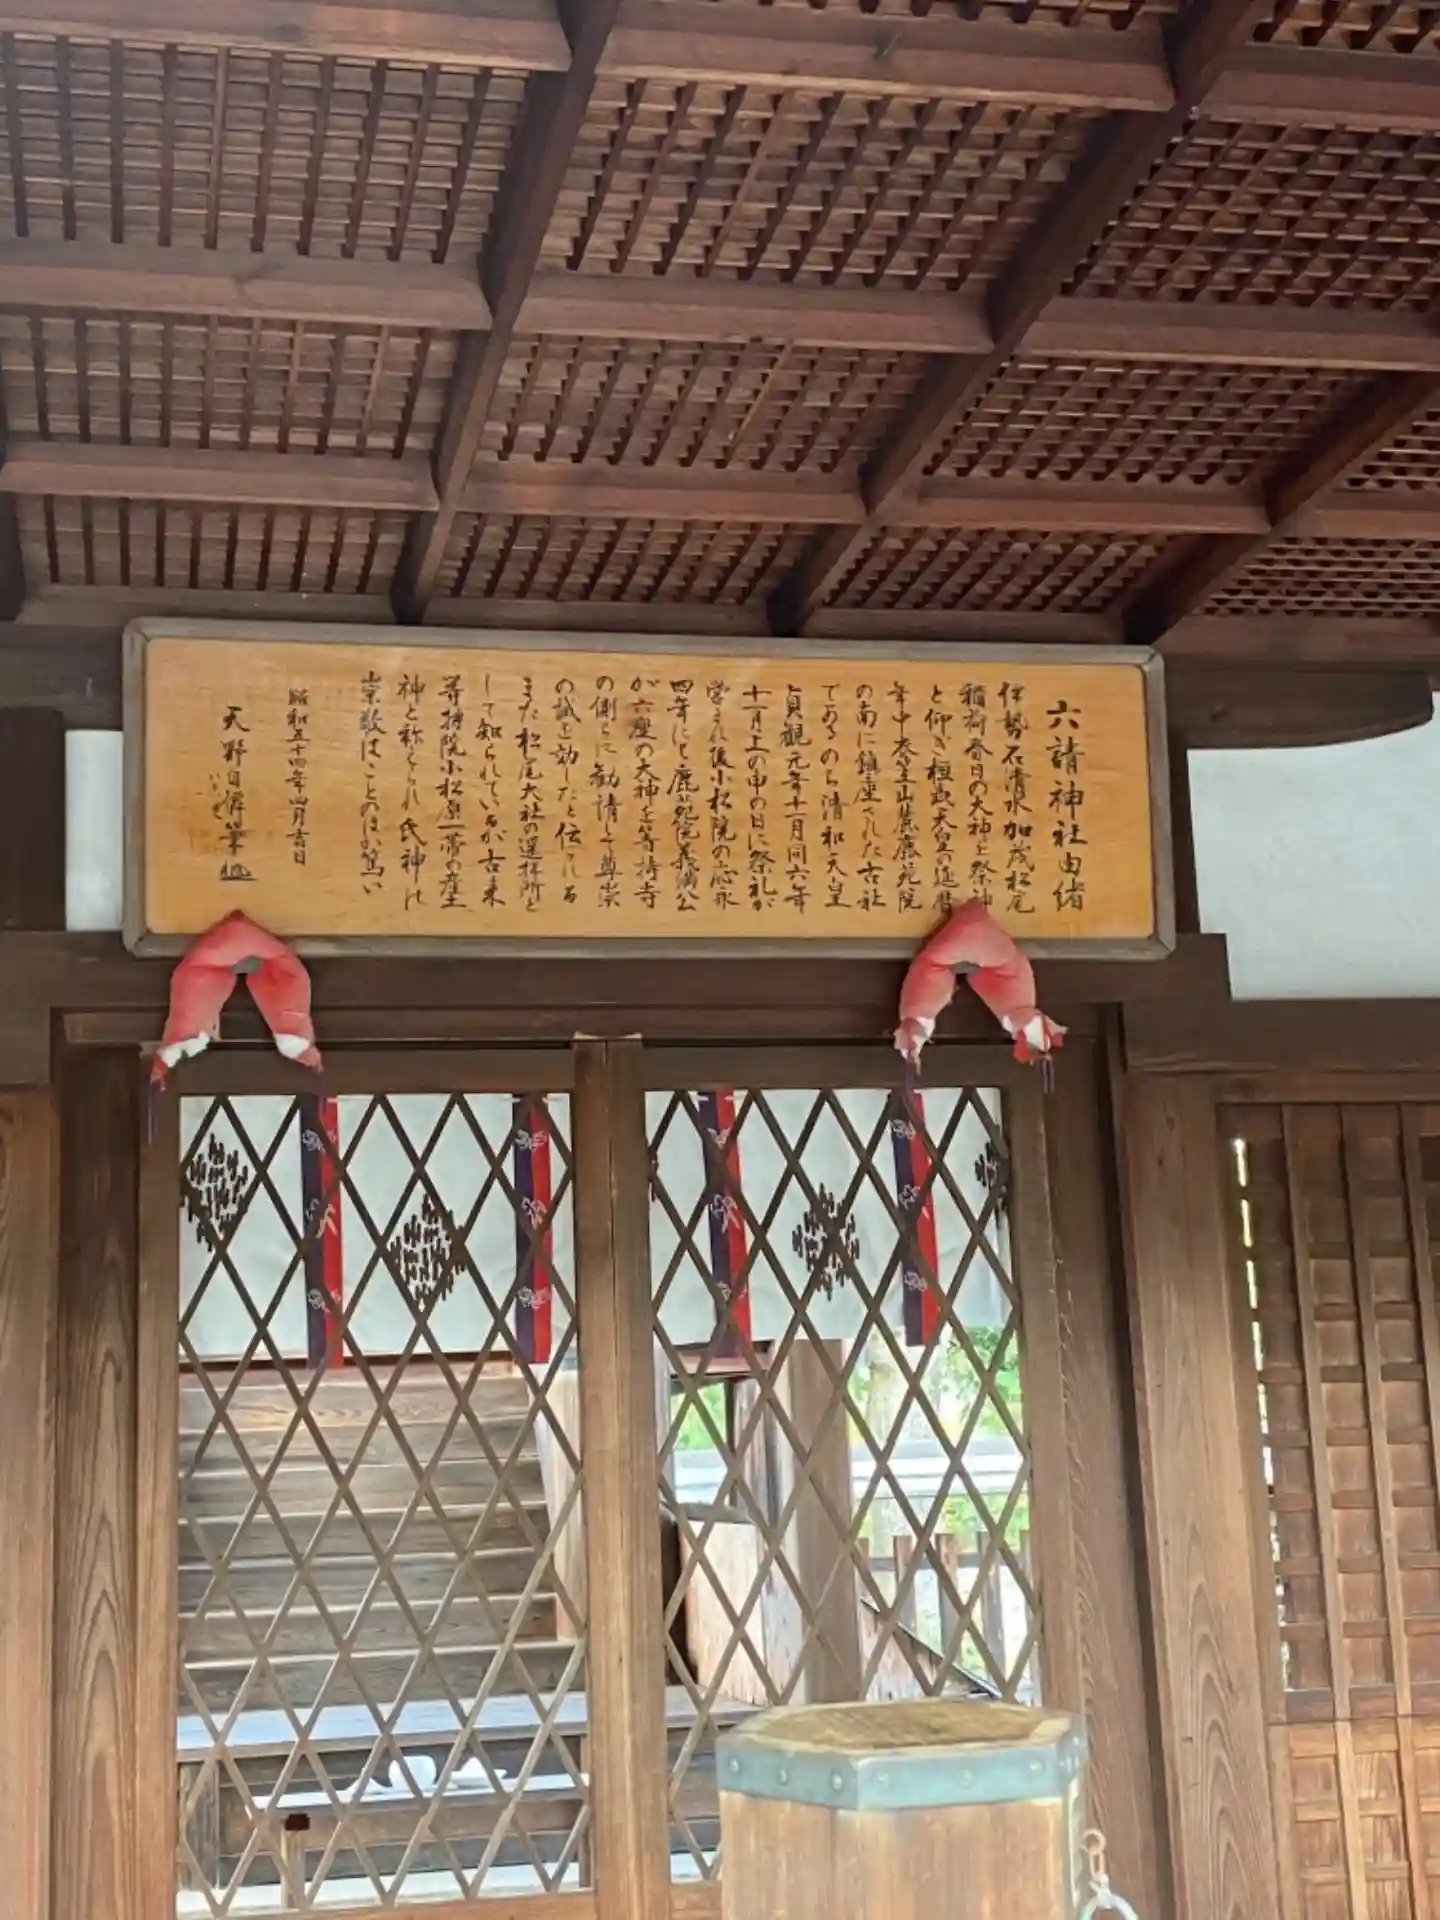 六請神社由緒
伊勢石清水加茂松尾
稲荷春日の大神を祭神
と仰ぎ桓武天皇の延暦
年中衣笠山麓鹿苑院
の南に鎮座された古社
である のち清和天皇
貞観元年十一月同六年
十一月上の申の日に祭礼が
営まれ後小松院の応永
四年にも鹿苑院義満公
が六座の大神を等持寺
の側らに勧請して尊崇
の誠を効したと伝れる
また松尾大社の遥拝所と
して知られているが古来
等持院小松原一帯の産土
神と称せられ氏神は
崇敬はことのほか篤い
昭和五十四年四月吉日
天野
筆